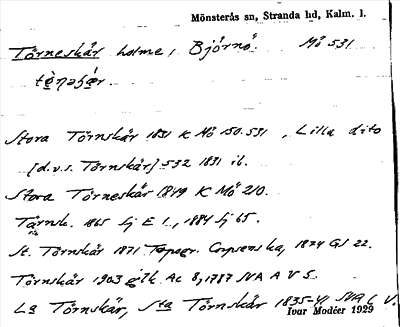 Mönsterås sn, Stranda hd, Kalm. l.
Törneskär holme, Björnö. Mö 531
Stora Törnskär 1831 K Mö 150.531, Lilla dito
[d.v.s. Törnskär] 532 1831 ib.
Stora Törneskär 1849 K Mö 210.
Törnsk. 1865 Sj E 1., 1884 Sj 65.
St. Törnskär 1871 Topogr. Corpsenska, 1874 GS 22.
Törnskär 1903 Ac 8, 1787 SVA A V 5.
La Törnskär, Sta Törnskär 1835-41 SVA C V.
Ivar Modéer 1929